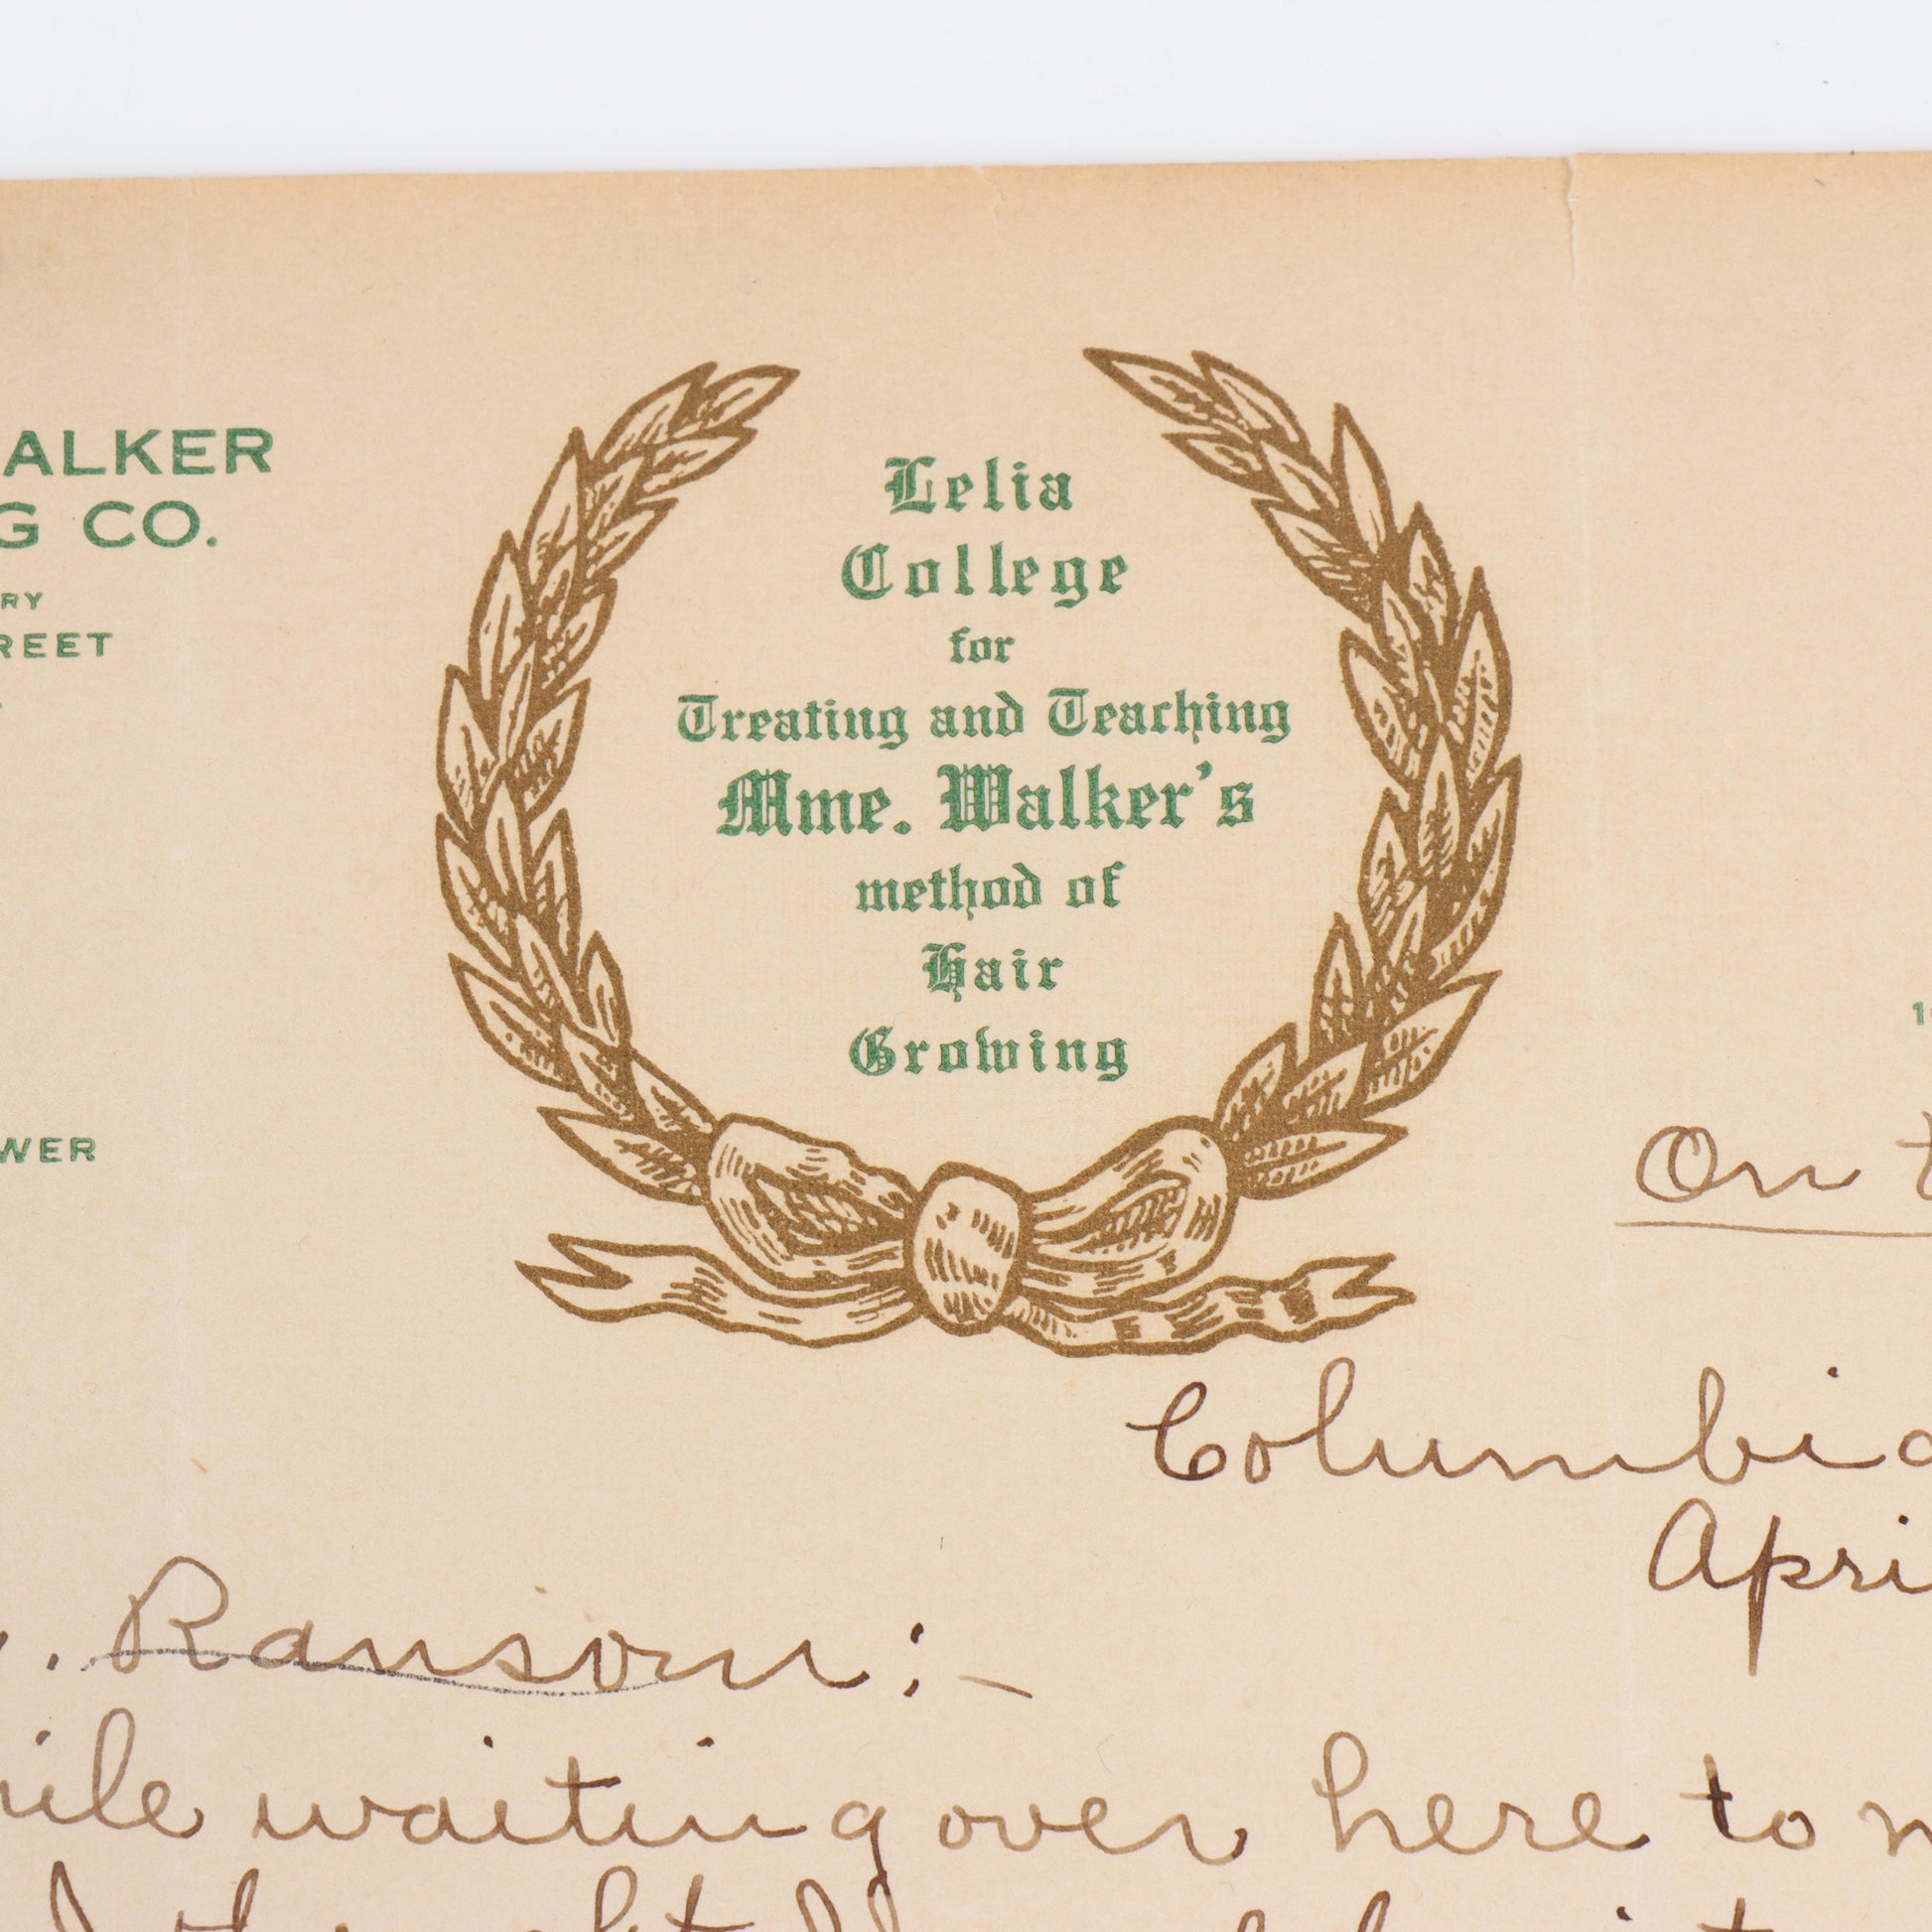 ALKER
G CO.
RY
REET
Lelia
College
for
Treating and Teaching
Mme. Walker's
method of
Hair
Growing
WER
On t
Columbia
Apri
. Ransom:-
ile waiting over here to m